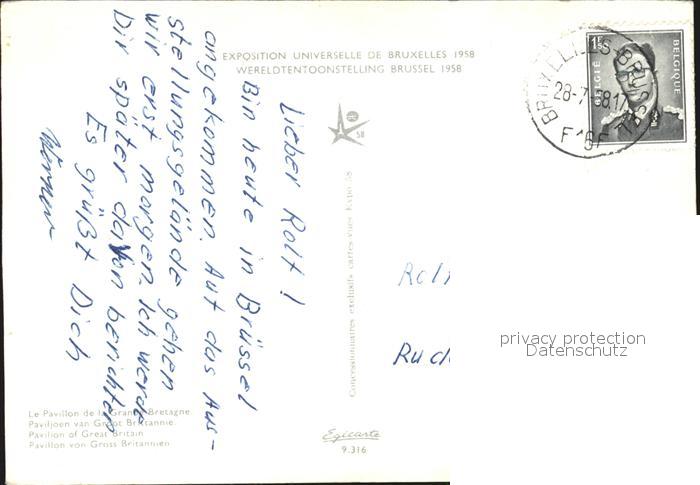 EXPOSITION UNIVERSELLE DE BRUXELLES 1958
WERELDTENTOONSTELLING BRUSSEL 1958
58
Lieber Rolf!
Bin heute in Brüssel
angekommen. Auf das Aus-
stellungsgelände gehen
wir erst morgen. Ich werde
Dir später davon berichten
Es grüßt Dich
Werner
Concessionnaires exclusifs cartes-vues Expo 58
BELGIË
BELGIQUE
28-7
F 16 F
Rol
Rud
privacy protection
Datenschutz
Le Pavillon de la Grande Bretagne.
Paviljoen van Groot Brittannie.
Pavilion of Great Britain
Pavillon von Gross Britannien
Egicarte
9.316